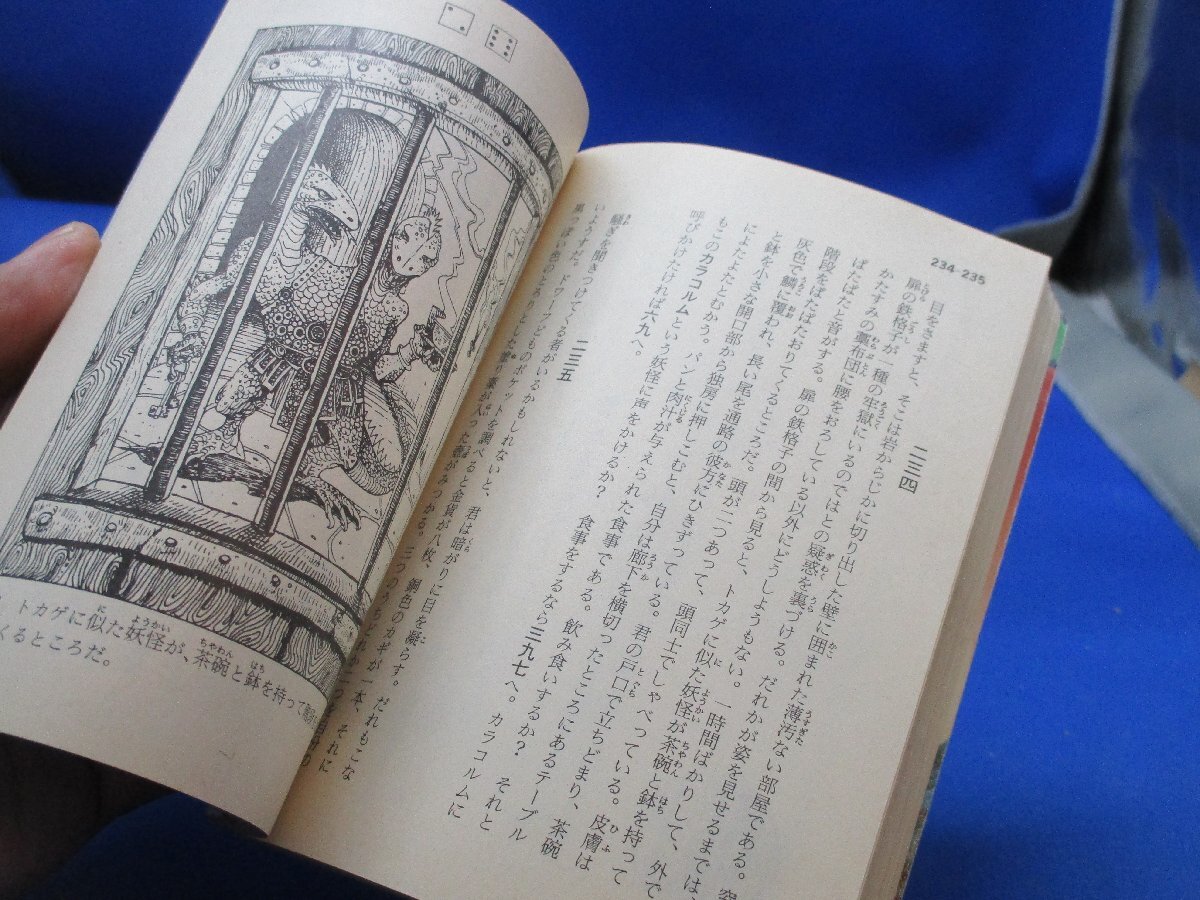 234-235
二三四
目をさますと、そこは岩からじかに切り出した壁に囲まれた薄汚ない部屋である。
扉の鉄格子が、一種の牢獄にいるのではとの疑惑を裏づける。だれかが姿を見せるまでは、
かたすみの藁布団に腰をおろしている以外にどうしようもない。一時間ばかりして、外で
ぱたぱたと音がする。扉の鉄格子の間から見ると、トカゲに似た妖怪が茶碗と鉢を持って
階段をぱたぱたおりてくるところだ。頭が二つあって、頭同士でしゃべっている。皮膚は
灰色で鱗に覆われ、長い尾を通路の彼方にひきずっている。君の戸口で立ちどまり、茶碗
と鉢を小さな開口部から独房に押しこむと、自分は廊下を横切ったところにあるテーブル
によたよたとむかう。パンと肉汁が与えられた食事である。飲み食いするか? それと
もこのカラコルムという妖怪に声をかけるか? 食事をするなら三九七へ。カラコルムに
呼びかけたければ六九へ。
二三五
騒ぎを聞きつけてくる者がいるかもしれないと、君は暗がりに目を凝らす。だれもこな
いようすだ。ドワーフどものポケットを調べると、金貨が八枚、銅色のカギが一本、それに
黒っぽい色の
トカゲに似た妖怪が、茶碗と鉢を持って
くるところだ。